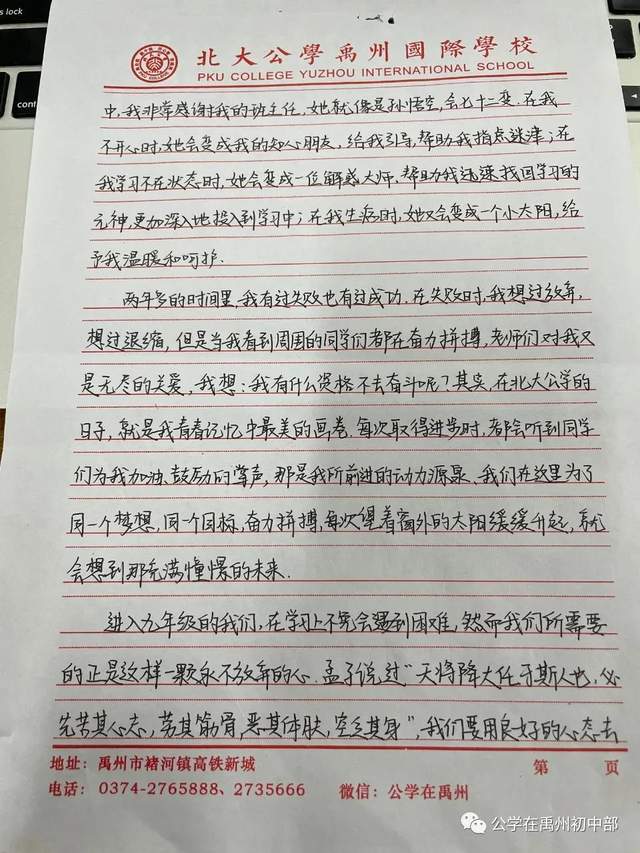 北大公學禹州國際學校
PKU COLLEGE YUZHOU INTERNATIONAL SCHOOL
中,我非常感谢我的班主任,她就像是孙悟空,会七十二变.在我
不开心时,她会变成我的知心朋友,给我引导,帮助我指点迷津;在
我学习不在状态时,她会变成一位解惑大师,帮助我迅速找回学习的
元神,更加深入地投入到学习中;在我生病时,她又会变成一个小太阳,给
予我温暖和呵护.
两年多的时间里,我有过失败也有过成功.在失败时,我想过放弃,
想过退缩,但是当我看到周围的同学们都在奋力拼搏,老师们对我又
是无尽的关爱,我想:我有什么资格不去奋斗呢?其实,在北大公学的
日子,就是我青春记忆中最美的画卷,每次取得进步时,都会听到同学
们为我加油、鼓励的掌声,那是我所前进的动力源泉、我们在这里为了
同一个梦想,同一个目标,奋力拼搏,每次望着窗外的太阳缓缓升起,我就
会想到那充满憧憬的未来.
进入九年级的我们,在学习上不免会遇到困难,然而我们所需要
的正是这样一颗永不放弃的心.孟子说过"天将降大任于斯人也,必
先苦其心志,劳其筋骨,恶其体肤,空乏其身",我们要用良好的心态去
地址:禹州市褚河镇高铁新城 第 页
电话:0374-2765888、2735666 微信:公学在禹州
公学在禹州初中部
lock
control